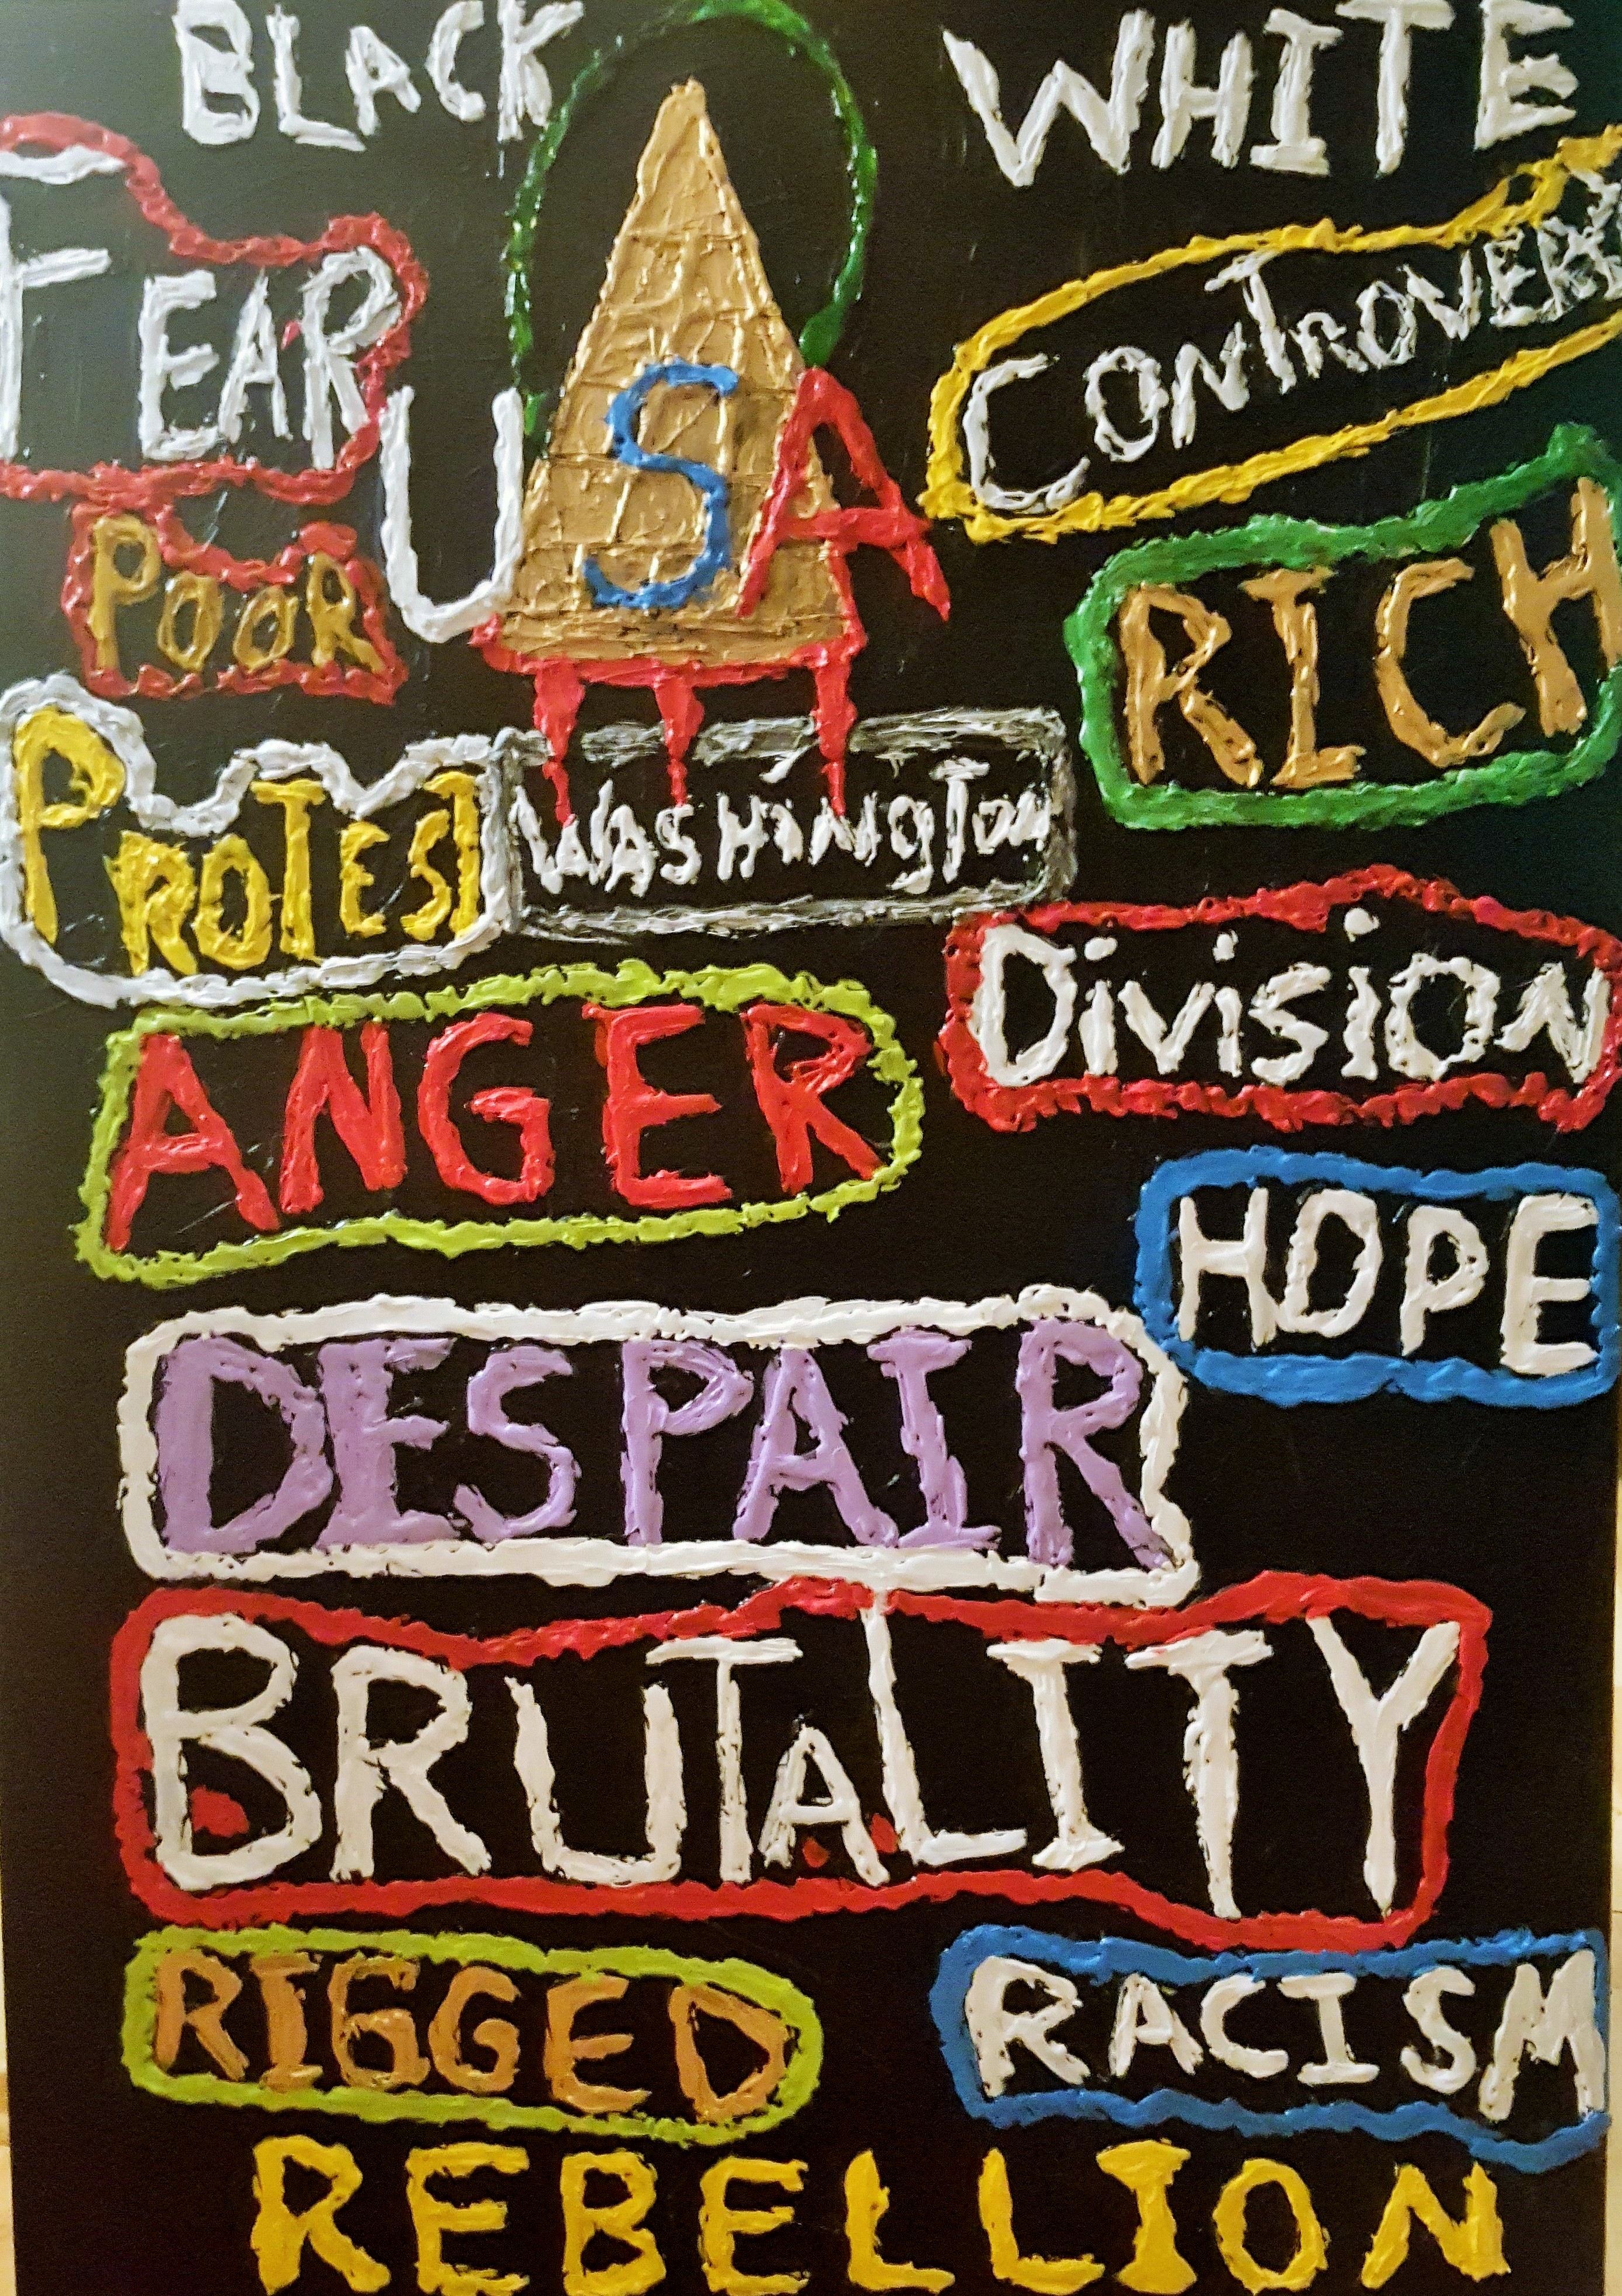 BLACK WHITE
FEAR CONTROVER
USA
POOR RICH
PROTEST WASHINGTON
DIVISION
ANGER
HOPE
DESPAIR
BRUTALITY
RIGGED RACISM
REBELLION